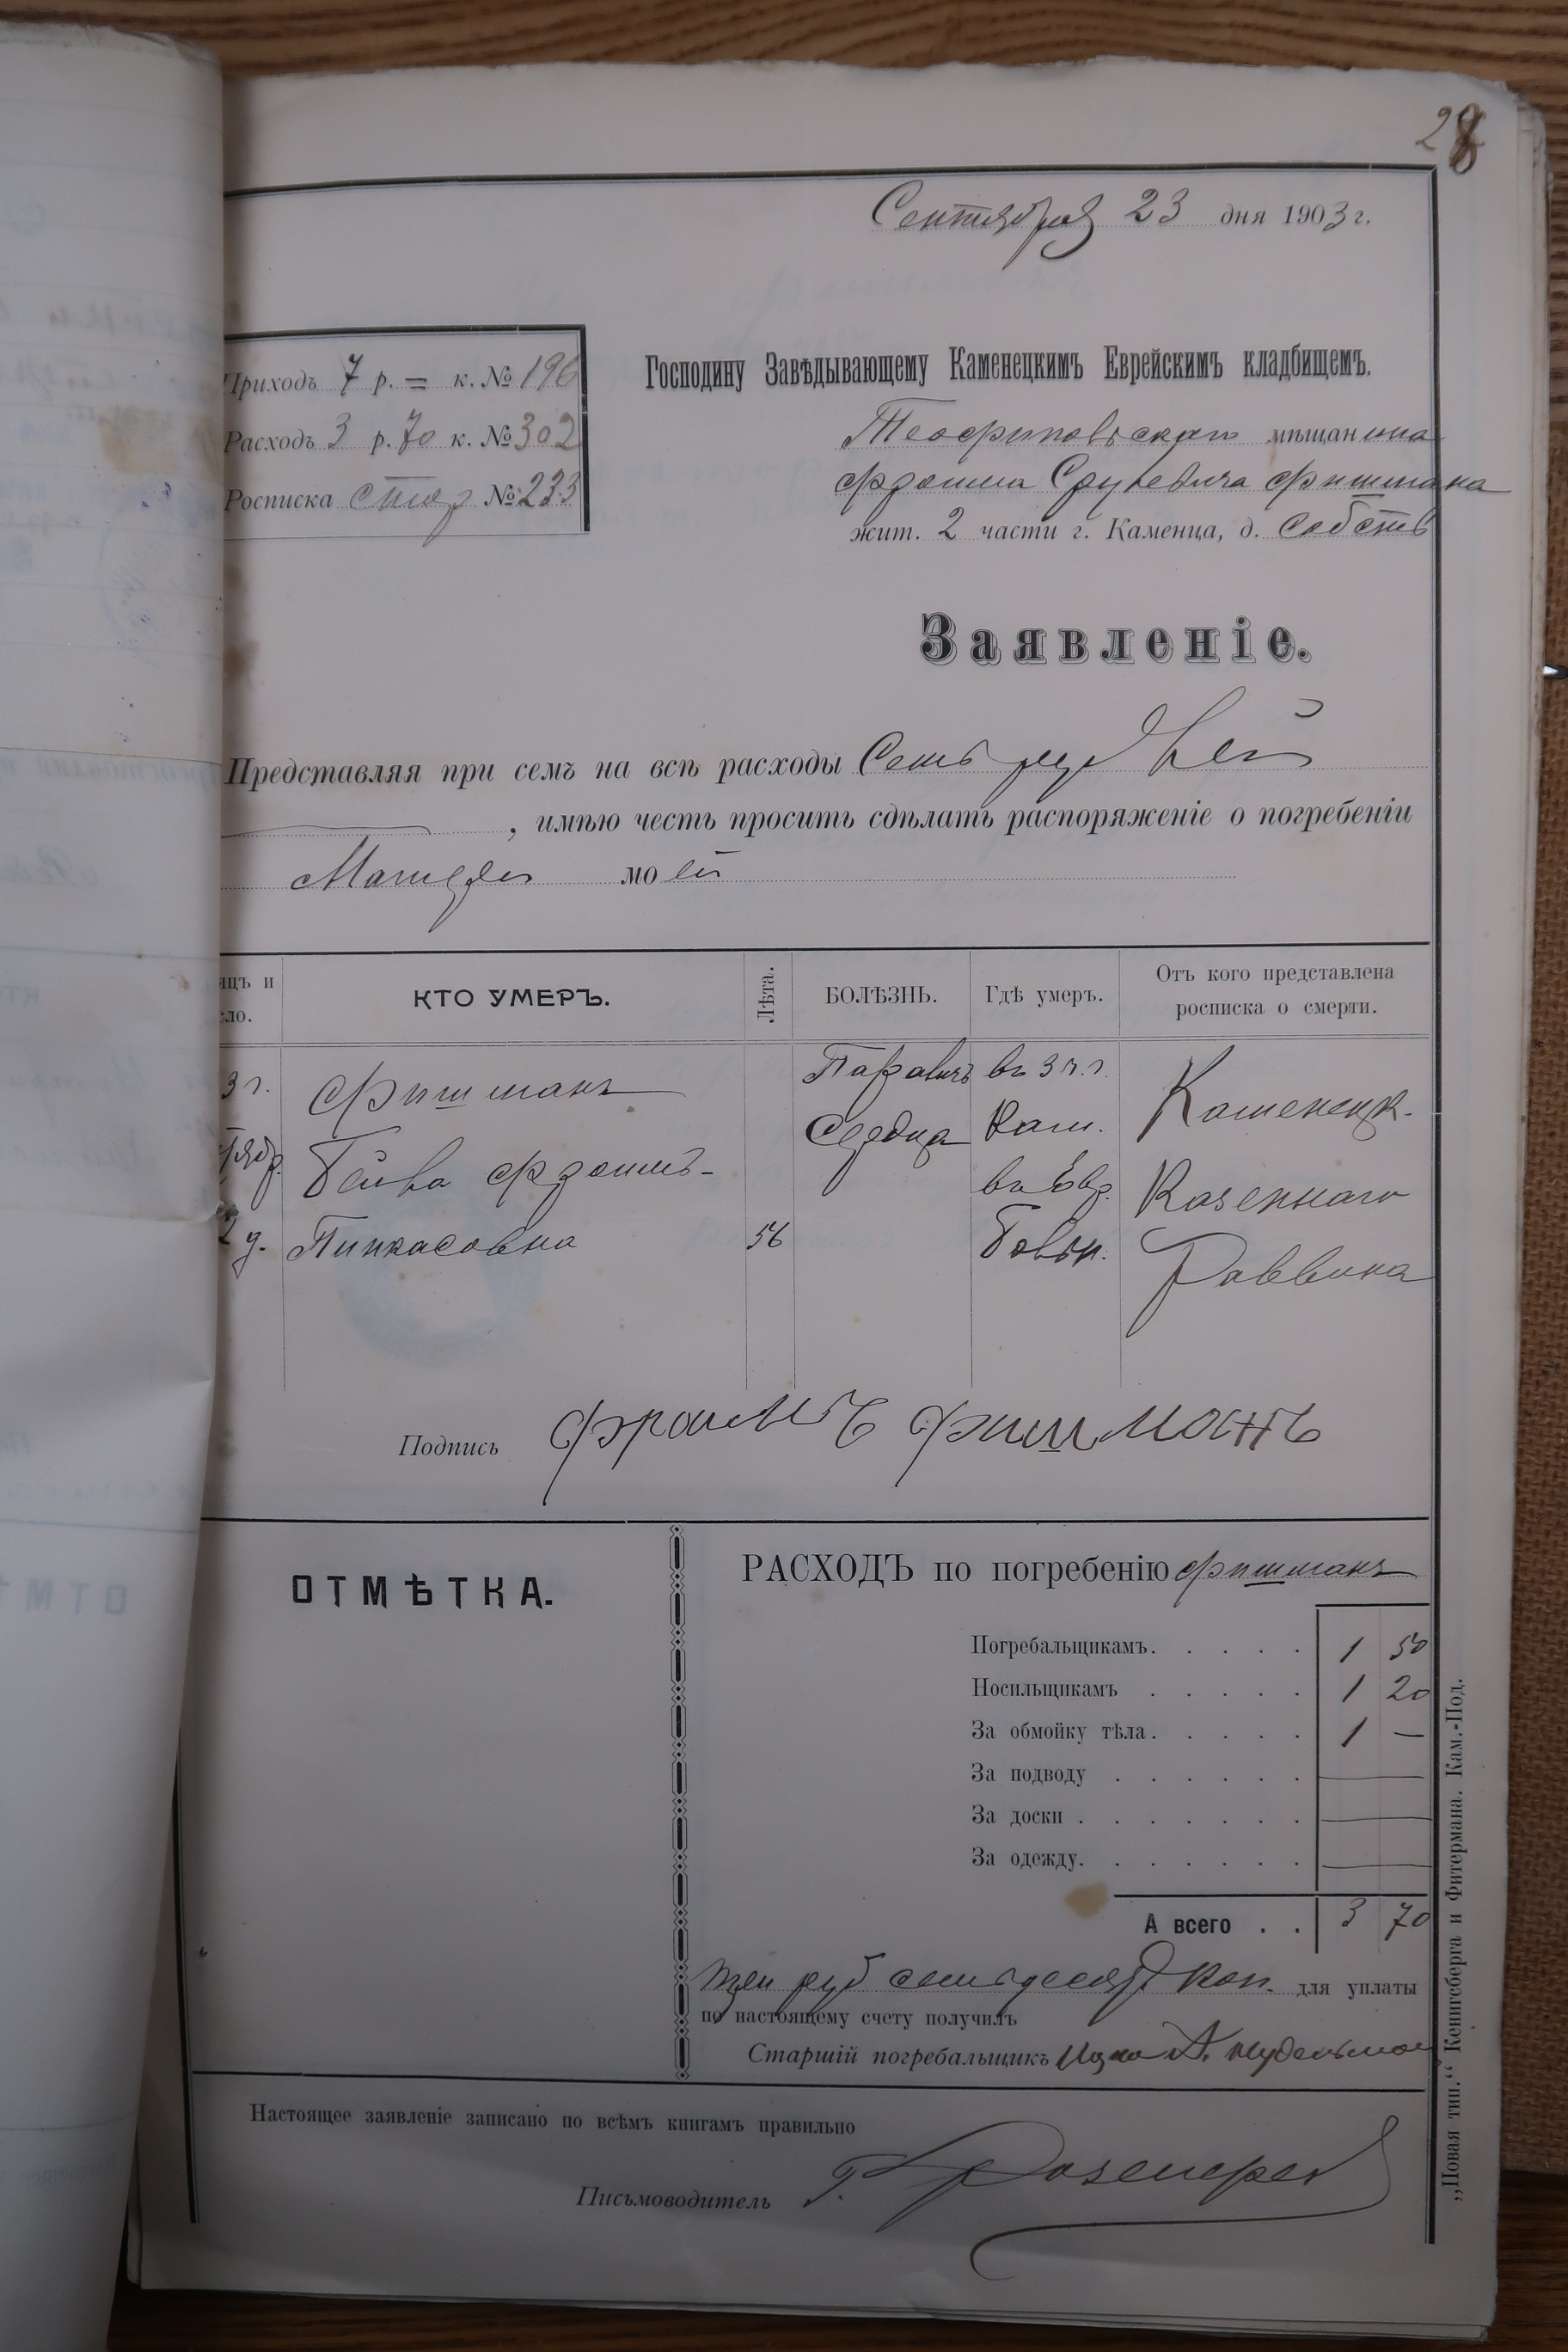 28
Сентября 23 дня 1903 г.
Приходъ 7 р. = к. № 196
Расходъ 3 р. 70 к. № 302
Росписка № 233
Господину Завѣдывающему Каменецкимъ Еврейскимъ кладбищемъ.
мѣщанина
Срулевича Фишмана
жит. 2 части г. Каменца, д. Собств
Заявленіе.
Представляя при семъ на всѣ расходы Семь рублей
, имѣю честь просить сдѣлать распоряженіе о погребеніи
Матери моей
яцъ и
сло.
КТО УМЕРЪ.
Лѣта.
БОЛѢЗНЬ.
Гдѣ умеръ.
Отъ кого представлена
росписка о смерти.
3 г.
тябр.
2 д.
Фишманъ
Бейла
Пинкасовна
56
Параличъ
Сердца
въ 3 ч. г.
Кам.
въ Евр.
Больн.
Каменецк.
Казеннаго
Раввина
Подпись Фроимъ Фишманъ
ОТМѢТКА.
РАСХОДЪ по погребенію Фишманъ
Погребальщикамъ. . . . . 1 50
Носильщикамъ . . . . . 1 20
За обмойку тѣла. . . . . 1 —
За подводу . . . . . . —
За доски . . . . . . . —
За одежду. . . . . . . —
А всего . . 3 70
три руб семьдесят коп. для уплаты
по настоящему счету получилъ
Старшій погребальщикъ
Настоящее заявленіе записано по всѣмъ книгамъ правильно
Письмоводитель
„Новая тип.“ Кенигсберга и Фитермана. Кам.-Под.